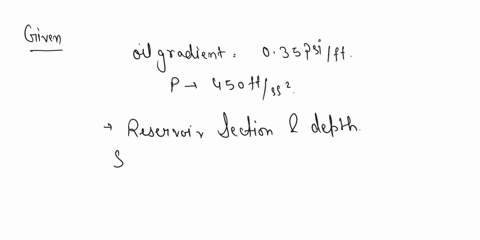 Given
oil gradient: 0.35 psi/ft.
P → 450 ft/ss².
→ Reservoir Section & depth.
S